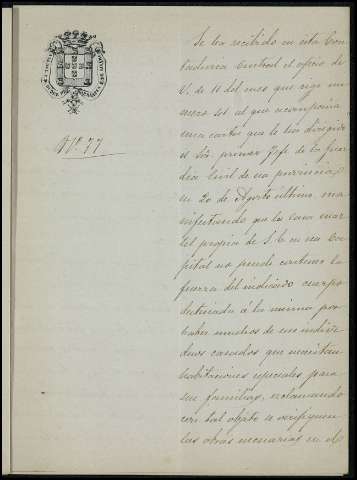 Nº. 77
Se ha recibido en esta Con-
taduria Central el oficio de
V. de 11 del mes que rige nu-
mero 501 al que acompaña
una carta que le ha dirigido
el Sor. primer Jefe de la Guar-
dia Civil de esa provincia
en 20 de Agosto último, ma-
nifestando que la casa cuar-
tel propia de S. E. en esa Ca-
pital no puede contener la
fuerza del indicado cuerpo
destinada á la misma por
haber muchos de sus indivi-
duos casados que necesitan
habitaciones especiales para
sus familias, reclamando
con tal objeto se verifiquen
las obras necesarias en el